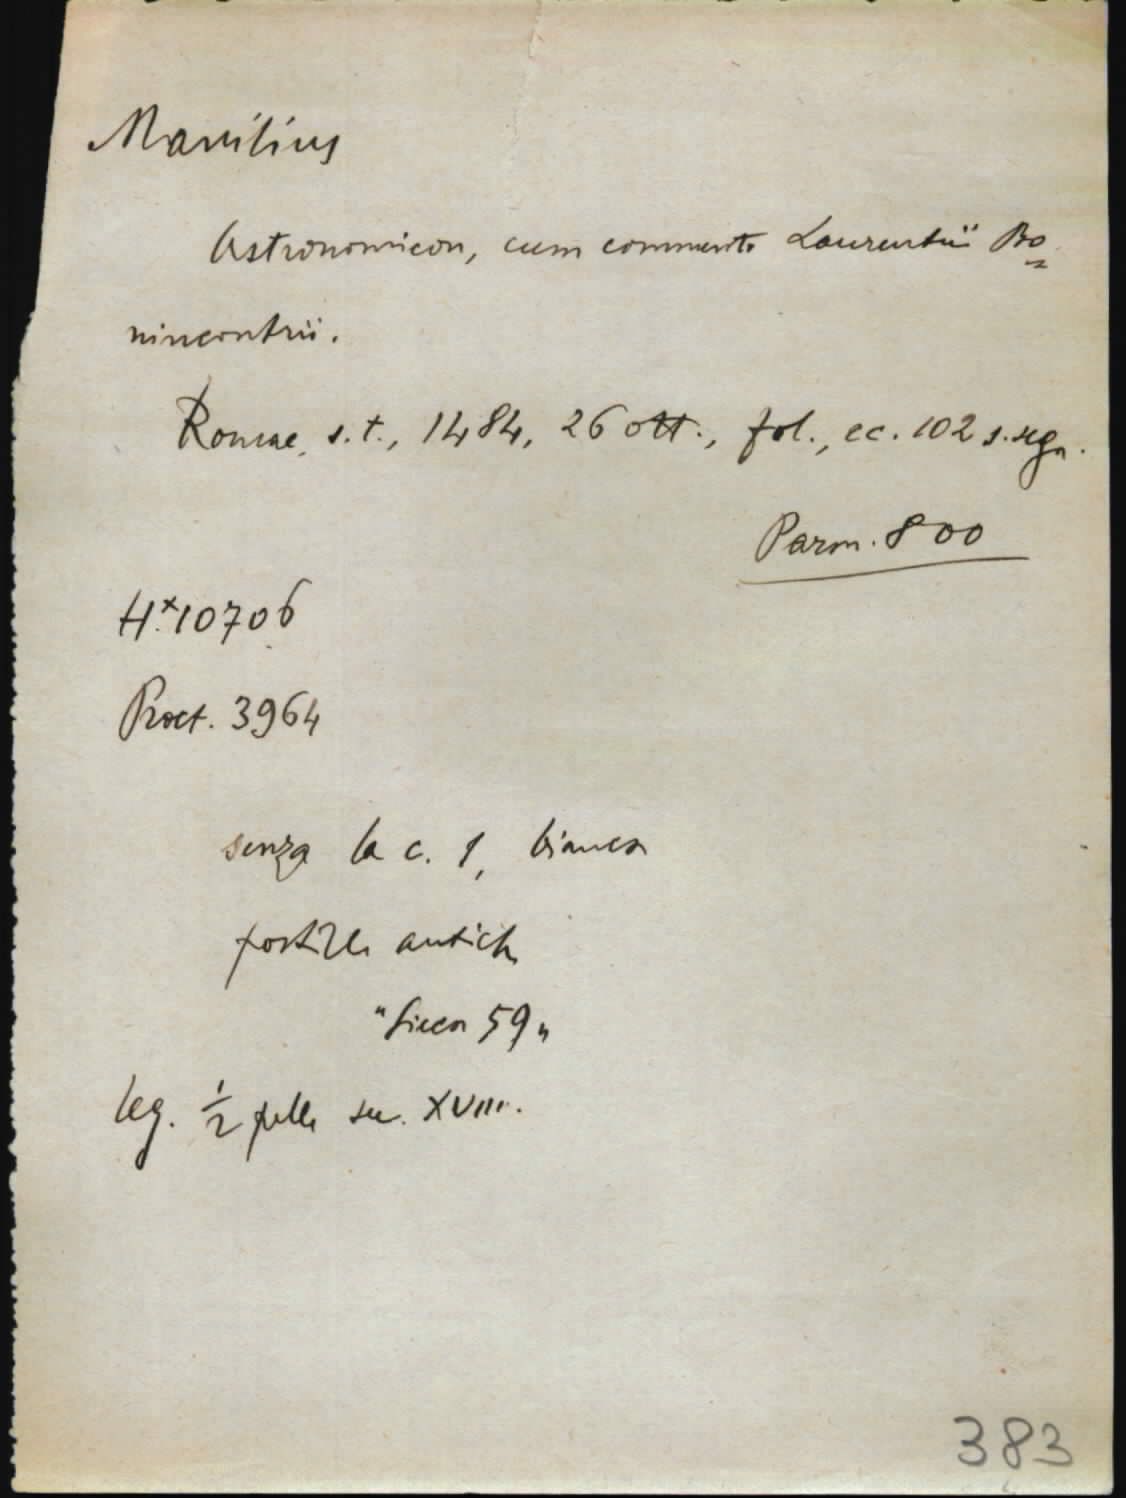 Manilius
Astronomicon, cum commento Laurentii Bo=
nincontrii.
Romae, s.t., 1484, 26 ott., fol., cc. 102 s. segn.
Parm. 800
H.x 10706
Proct. 3964
senza la c. 1, bianca
postille antiche
" 59 "
leg. 1/2 pelle sec. XVIII.
383